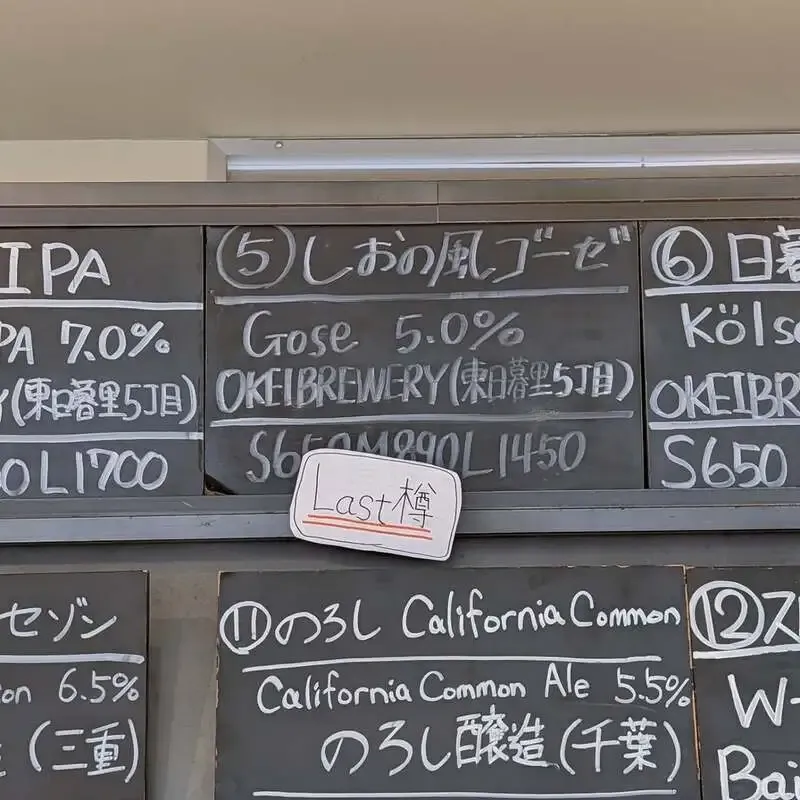 IPA
PA 7.0%
(東日暮里5丁目)
0 L1700
⑤しおの風ゴーゼ
Gose 5.0%
OKEIBREWERY(東日暮里5丁目)
S650M890L1450
Last樽
⑥日暮
Köls
OKEIBR
S650
セゾン
on 6.5%
(三重)
⑪のろし California Common
California Common Ale 5.5%
のろし醸造(千葉)
⑫ス
W-
Bai